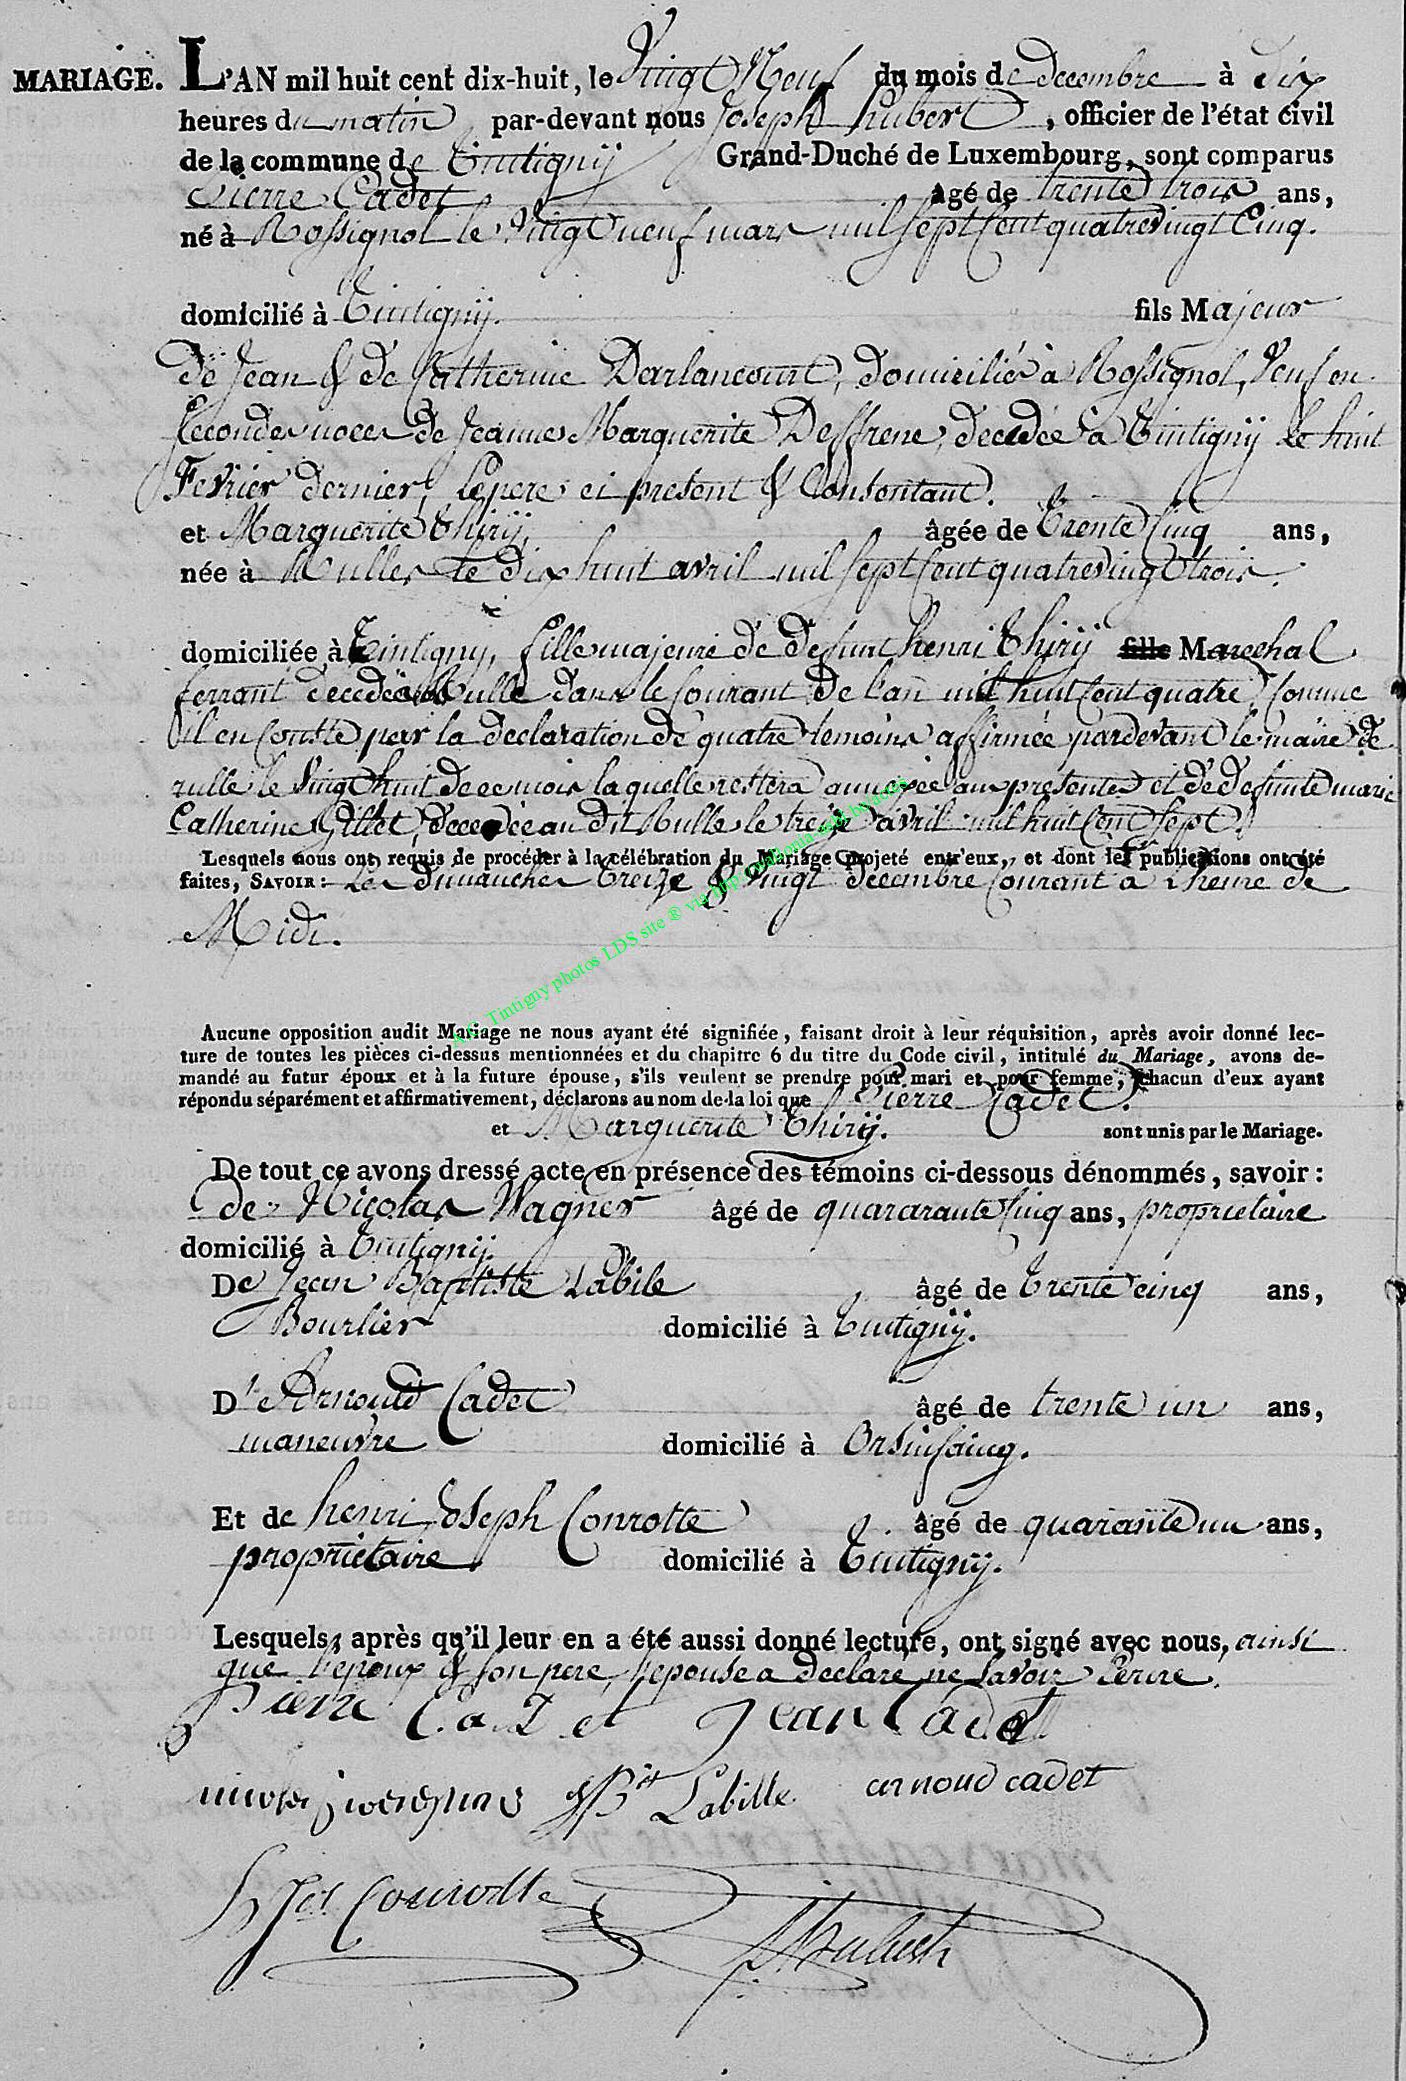 MARIAGE. L'AN mil huit cent dix-huit, le Vingt Neuf du mois de decembre à dix
heures du matin par-devant nous Joseph hubert, officier de l'état civil
de la commune de Tintignÿ Grand-Duché de Luxembourg, sont comparus
Pierre Cadet âgé de trente trois ans,
né à Rossignol le Vingt neuf mars mil sept Cent quatrevingt Cinq.
domicilié à Tintignÿ. fils Majeur
de Jean & de Catherine Darlancourt, domiciliés à Rossignol, Veuf en
secondes noces de Jeanne Marguerite Deffrene, decedée à Tintignÿ le huit
Fevrier dernier, le pere ci present & Consentant.
et Marguerite Thirÿ, âgée de Trente Cinq ans,
née à Rulles le dix huit avril mil sept Cent quatrevingt trois.
domiciliée à Tintigny, fille majeure de defunt henri Thirÿ fille Marechal
ferrant decedé à Rulle dans le Courant de l'an mil huit Cent quatre, Comme
il en Conste par la declaration de quatre temoins affirmée pardevant le maire de
rulle le Vingt huit de ce mois laquelle restera annexée aux presentes et de defunte marie
Catherine Gillet, decedée au dit Rulle le treize avril mil huit Cent Sept.
Lesquels nous ont requis de procéder à la célébration du Mariage projeté entr'eux, et dont les publications ont été
faites, SAVOIR: Les dimanches Treize & Vingt decembre Courant à l'heure de
Midi.
A.C. Tintigny photos LDS site ® via http://wallonia-asbl.be/actes
Aucune opposition audit Mariage ne nous ayant été signifiée, faisant droit à leur réquisition, après avoir donné lec-
ture de toutes les pièces ci-dessus mentionnées et du chapitre 6 du titre du Code civil, intitulé du Mariage, avons de-
mandé au futur époux et à la future épouse, s'ils veulent se prendre pour mari et pour femme, chacun d'eux ayant
répondu séparément et affirmativement, déclarons au nom de la loi que Pierre Cadet.
et Marguerite Thirÿ. sont unis par le Mariage.
De tout ce avons dressé acte en présence des témoins ci-dessous dénommés, savoir:
de Nicolas Wagner âgé de quararante Cinq ans, proprietaire
domicilié à Tintignÿ.
De Jean Baptiste Labile âgé de Trente cinq ans,
Bourlier domicilié à Tintignÿ.
D'e Arnould Cadet âgé de trente un ans,
maneuvre domicilié à Orsinfaing.
Et de henri Joseph Conrotte âgé de quarante un ans,
proprietaire domicilié à Tintignÿ.
Lesquels, après qu'il leur en a été aussi donné lecture, ont signé avec nous, ainsi
que l'epoux & son pere, l'epouse a declaré ne Savoir Ecrire.
Pierre Cadet Jean Cadet
JBte Labille arnoud cadet
h Jos Conrotte JHubert